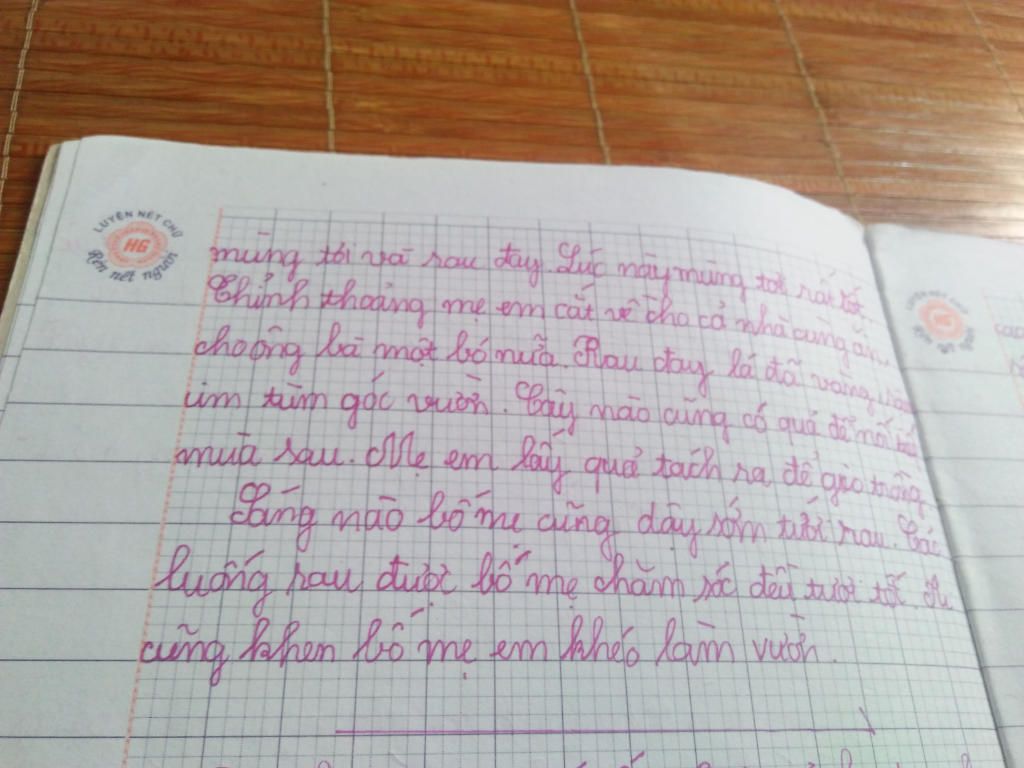 LUYỆN NÉT CHỮ
HG
Rèn nết người
mùng tơi và rau đay. Lúc này mùng tơi rất tốt.
Thỉnh thoảng mẹ em cắt về cho cả nhà cùng ăn,
cho ông bà một bó nữa. Rau đay lá đã vàng
um tùm góc vườn. Cây nào cũng có quả để
mùa sau. Mẹ em lấy quả tách ra để gieo trồng
Sáng nào bố mẹ cũng dậy sớm tưới rau. Các
luống rau được bố mẹ chăm sóc đều tươi tốt. Ai
cũng khen bố mẹ em khéo làm vườn.